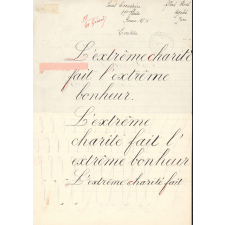 L'extrême charité
fait l'extrême
bonheur.
L'extrême
charité fait l'
extrême bonheur
L'extrême charité fait